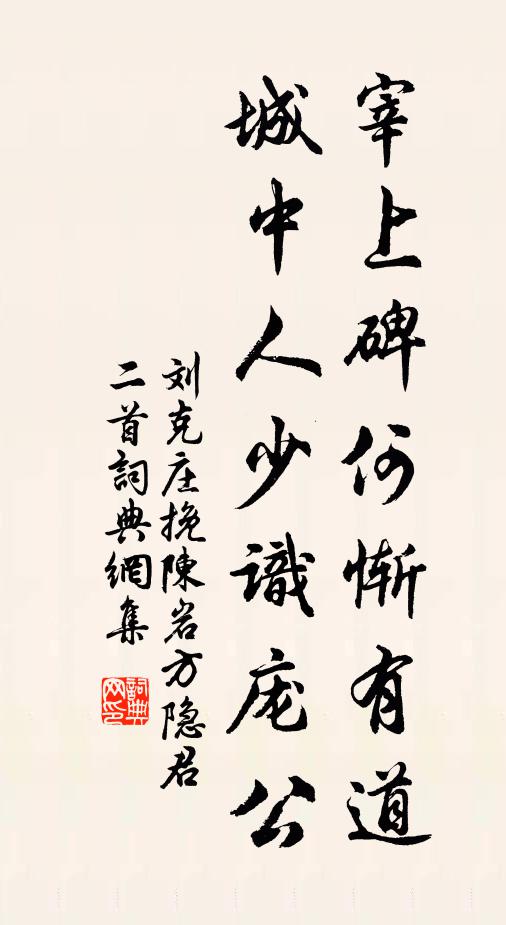 宰上碑何惭有道
城中人少識庞公
刘克庄挽陳岩方隐君
二首詞典網集
詞典
网印